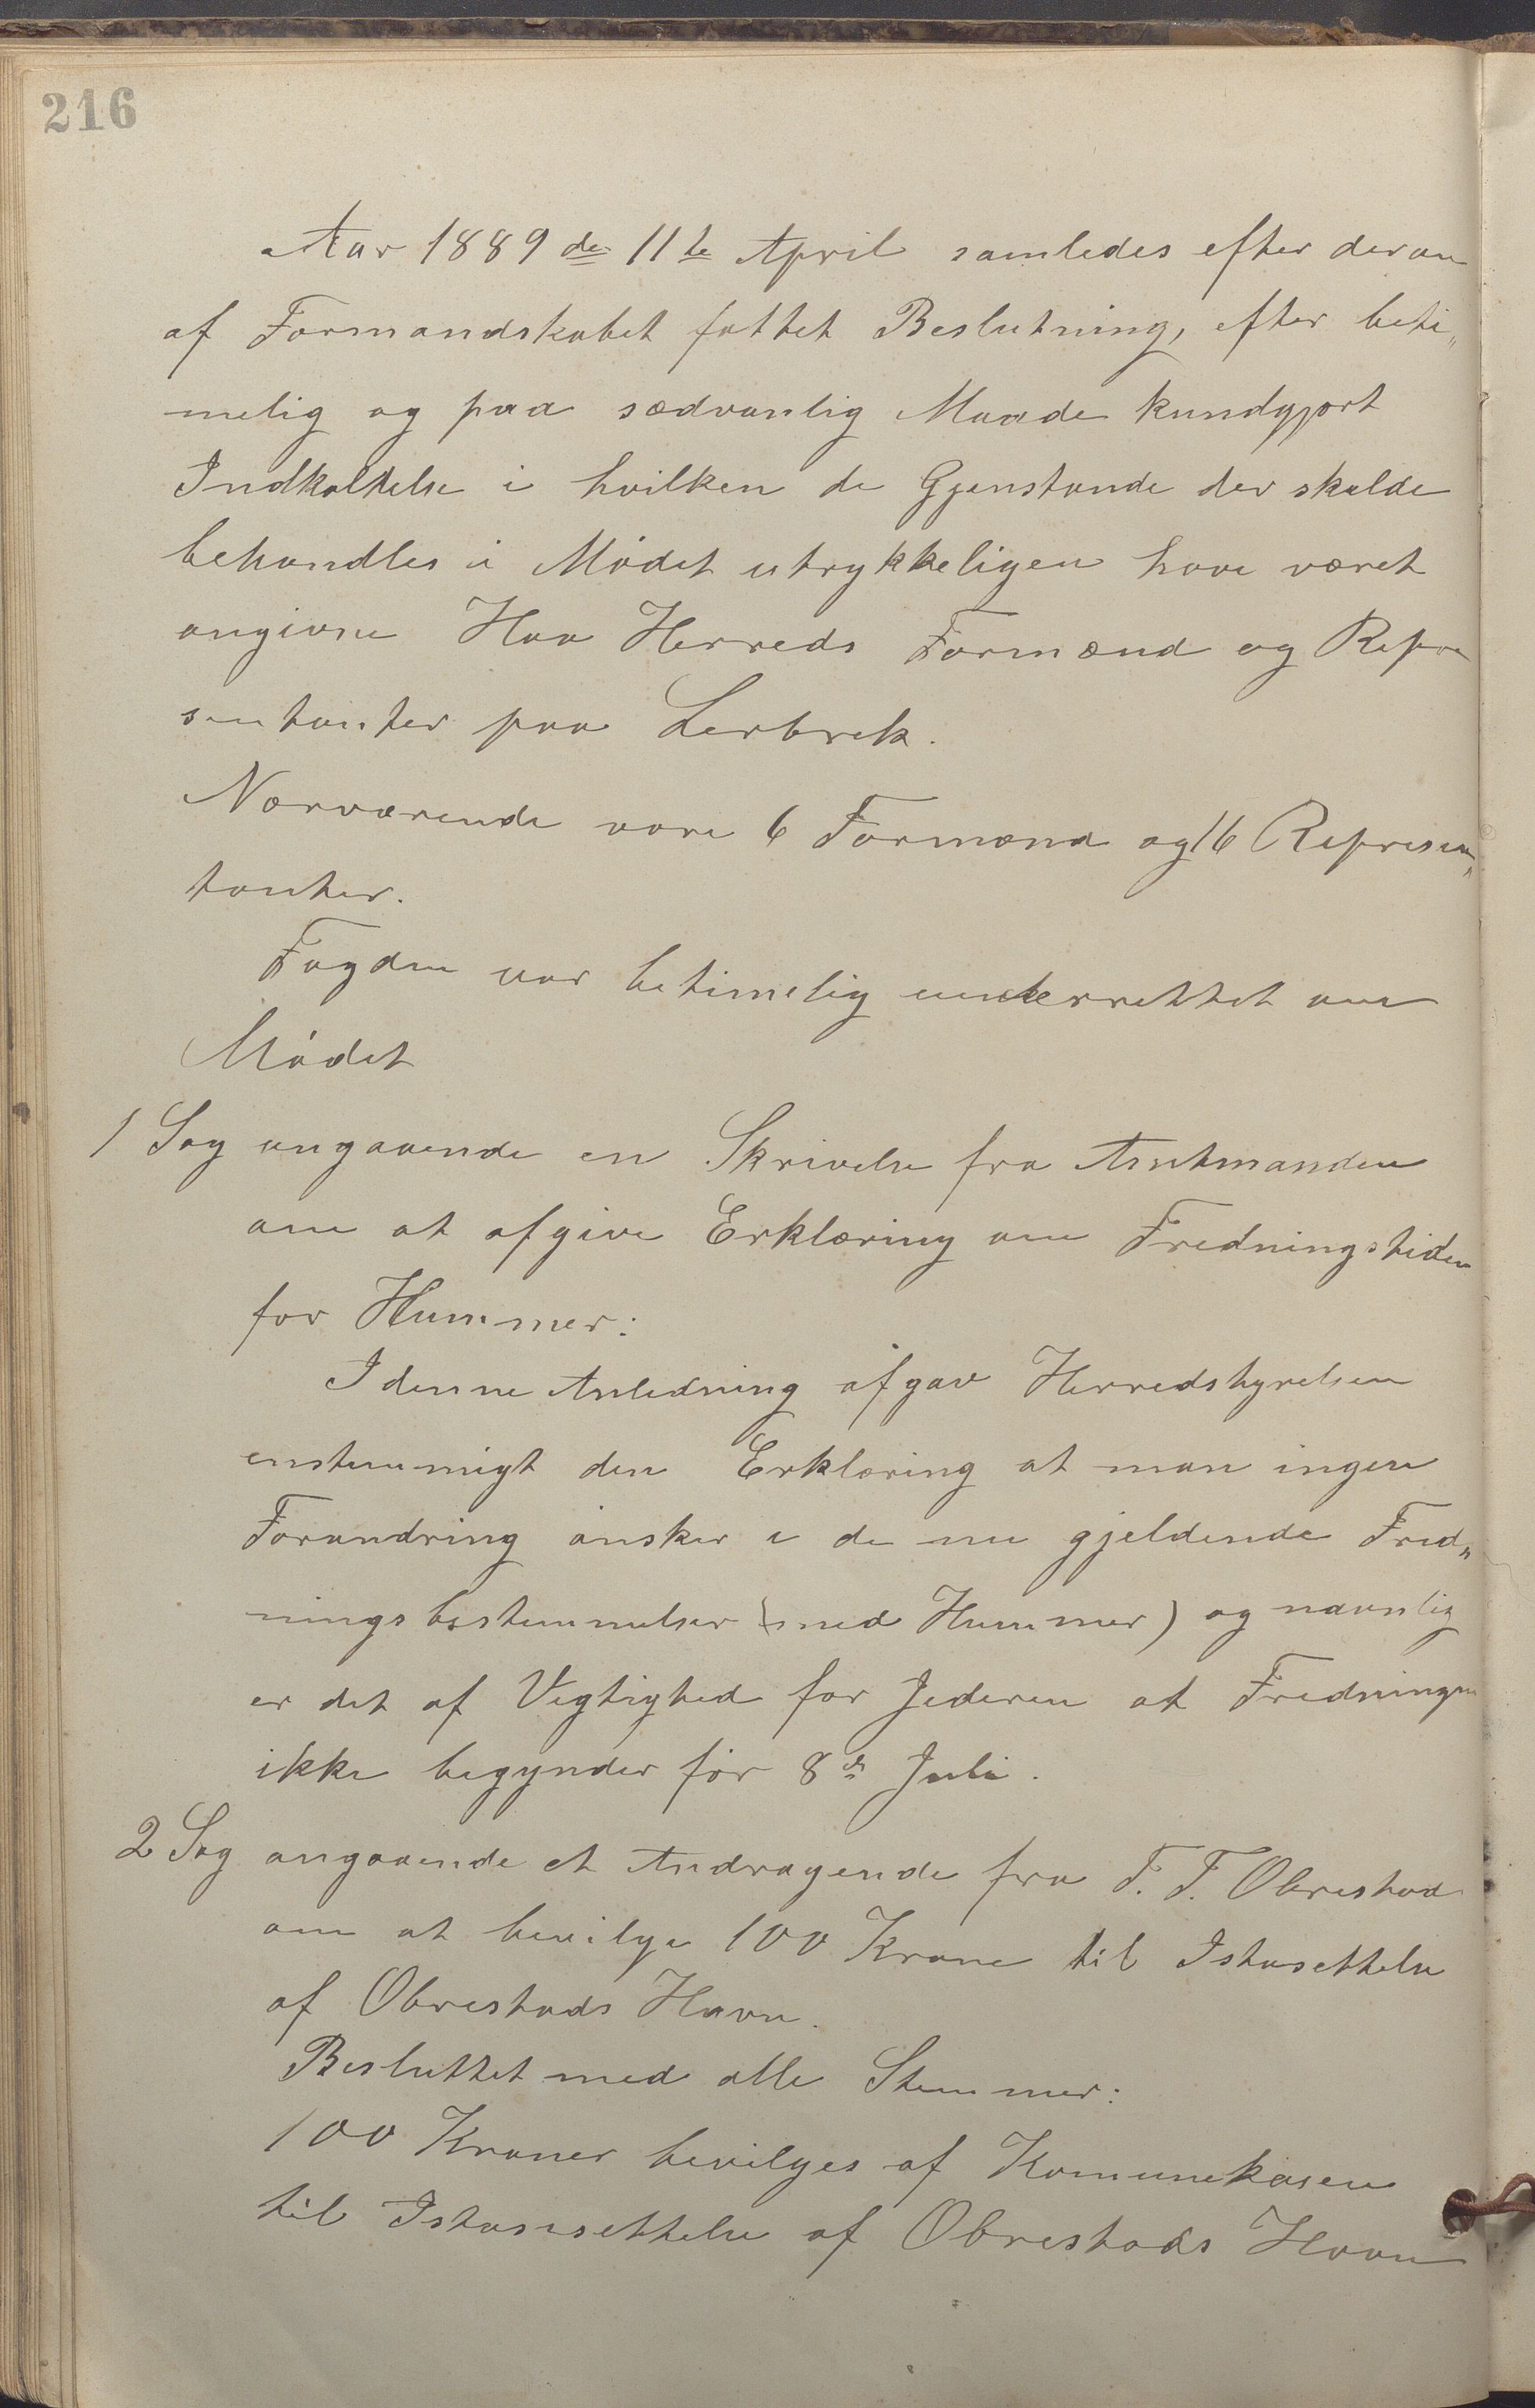 216
Aar 1889 de 11te April samledes efter derom
af Formandskabet fattet Beslutning, efter beti„
melig og paa sædvanlig Maade kundgjort
Indkaldelse i hvilken de Gjenstande der skulde
behandles i Mødet utrykkeligen have været
angivne Haa Herreds Formænd og Repre
sentanter paa Lerbrek.
Nærværende vare 6 Formænd og 16 Represen„
tanter.
Fogden var betimelig underrettet om
Mødet
1 Sag angaaende en Skrivelse fra Amtmanden
om at afgive Erklæring om Fredningstiden
for Hummer:
I denne Anledning afgav Herredstyrelsen
enstemmigt den Erklæring at man ingen
Forandring ønsker i de nu gjeldende Fred„
ningsbestemmelser (med Hummer) og navnlig
er det af Vigtighed for Jederen at Fredningen
ikke begynder før 8de Juli.
2 Sag angaaende et Andragende fra T. T. Obrestad
om at bevilge 100 Krone til Istansettelse
af Obrestads Havn.
Besluttet med alle Stemmer:
100 Kroner bevilges af Komunekasen
til Istansettelse af Obrestads Havn